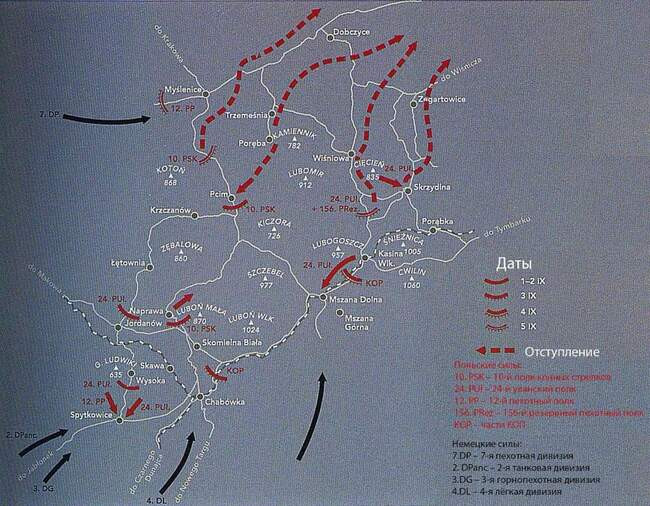 do Krakowa
Dobczyce
do Wiśnicza
Myślenice
12. PP
Zegartowice
7. DP
Trzemeśnia
KAMIENNIK
782
Poręba
10. PSK
KOTOŃ
868
LUBOMIR
912
Wiśniowa
CIECIEŃ
835
24. PUŁ
Skrzydlna
Pcim
10. PSK
24. PUŁ
+ 156. PRez
Krzczanów
KICZORA
726
Porąbka
do Tymbarku
ZĘBALOWA
860
LUBOGOSZCZ
957
ŚNIEŻNICA
1005
Kasina
Wlk.
Łętownia
24. PUŁ
KOP
ĆWILIN
1060
SZCZEBEL
977
24. PUŁ
Naprawa
LUBOŃ MAŁA
870
Mszana Dolna
Jordanów
10. PSK
LUBOŃ WLK
1024
Mszana
Górna
Skomielna Biała
G. LUDWIKI
635
Skawa
KOP
Wysoka
12. PP
24. PUŁ
Chabówka
Spytkowice
2. DPanc.
do Jabłonek
3. DG
do Czarnego
Dunajca
do Nowego Targu
4. DL
Даты
1–2 IX
3 IX
4 IX
5 IX
Отступление
Польские силы:
10. PSK – 10-й полк конных стрелков
24. PUł – 24-й уланский полк
12. PP – 12-й пехотный полк
156. PRez – 156-й резервный пехотный полк
KOP – части КОП
Немецкие силы:
7.DP – 7-я пехотная дивизия
2. DPanc – 2-я танковая дивизия
3.DG – 3-я горнопехотная дивизия
4.DL – 4-я лёгкая дивизия